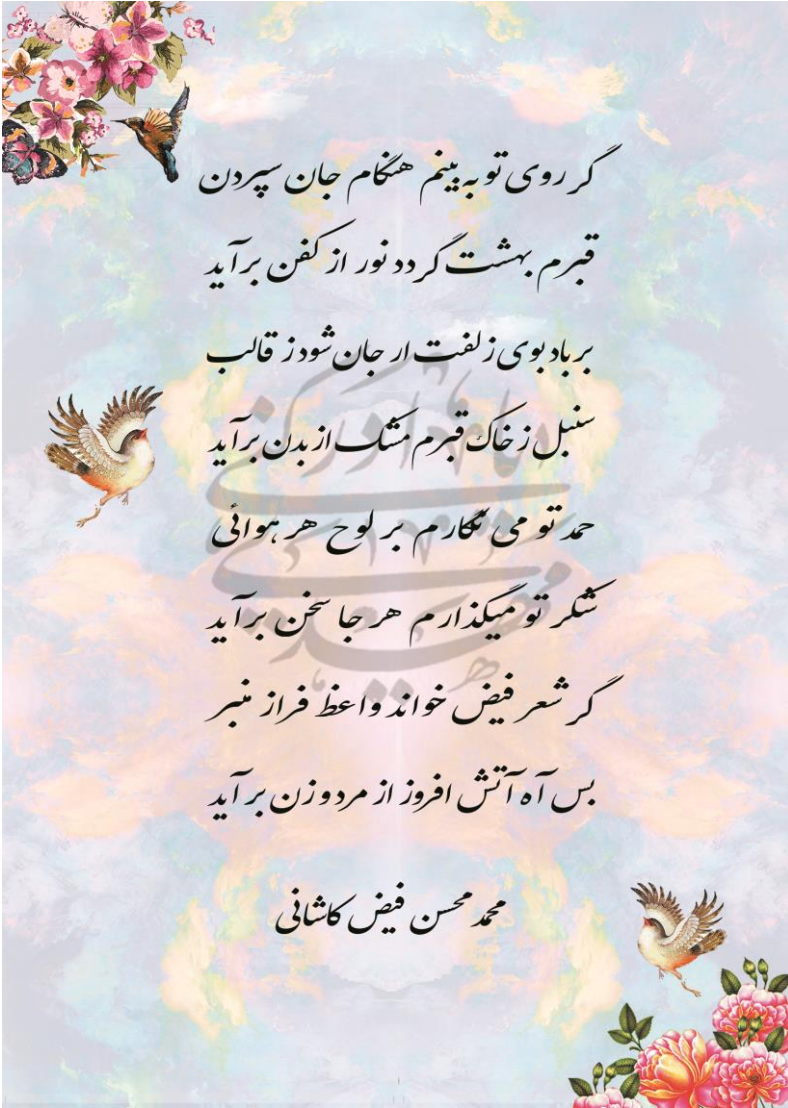 گر روی تو به بینم هنگام جان سپردن
قبرم بهشت گردد نور از کفن برآید
بر باد بوی زلفت ار جان شود ز قالب
سنبل ز خاک قبرم مشک از بدن برآید
حمد تو می نگارم بر لوح هر هوائی
شکر تو میگذارم هر جا سخن برآید
گر شعر فیض خواند واعظ فراز منبر
بس آه آتش افروز از مرد و زن برآید
محمد محسن فیض کاشانی